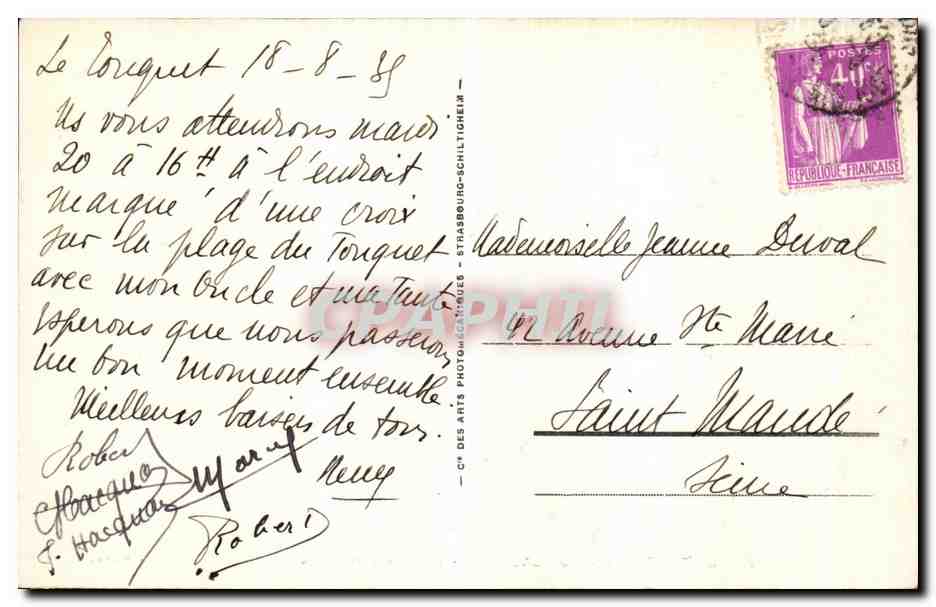 Le Touquet 18-8-35
Ns vous attendrons mardi
20 à 16H à l'endroit
marqué d'une croix
sur la plage du Touquet
avec mon Oncle et ma Tante
Esperons que nous passerons
un bon moment ensemble.
Meilleurs baisers de tous.
Robert
Marcel
Hacquar
Robert
Cie DES ARTS PHOTOMÉCANIQUES - STRASBOURG-SCHILTIGHEIM
POSTES
40c
RÉPUBLIQUE-FRANÇAISE
Mademoiselle Jeanne Duval
42 Avenue Ste Marie
Saint Mandé
Seine
CPAPHIL